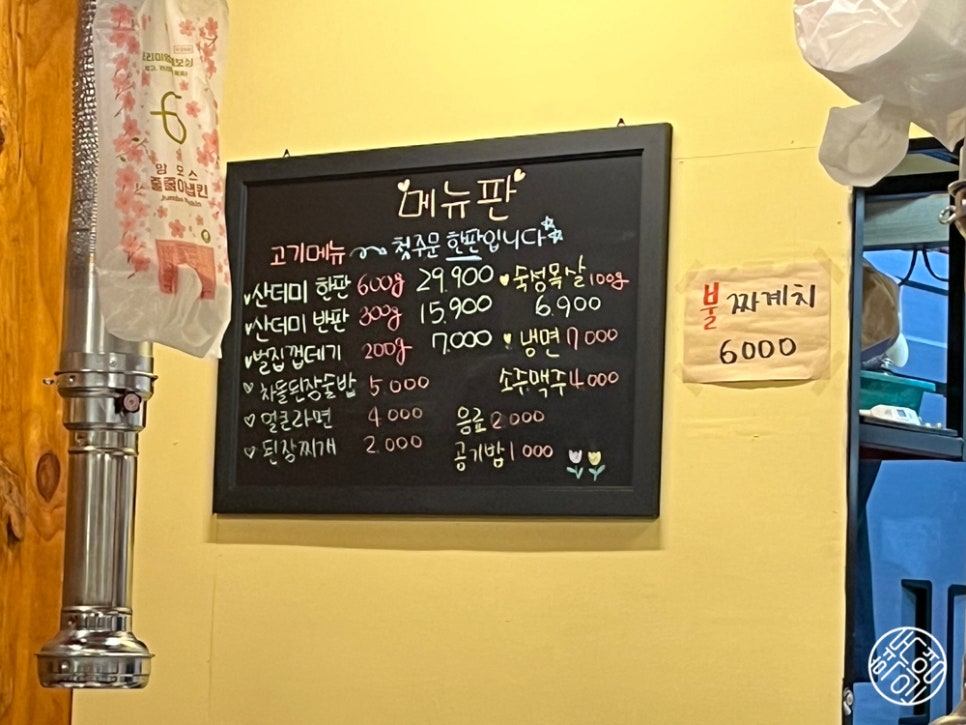 메뉴판
고기메뉴 첫주문 한판입니다
산더미 한판 600g 29,900
산더미 반판 300g 15,900
벌집껍데기 200g 7,000
차돌된장술밥 5,000
얼큰라면 4,000
된장찌개 2,000
숙성목살 100g
6,900
냉면 7,000
소주.맥주 4,000
음료 2,000
공기밥 1,000
불 짜계치
6000
6
맘 모 스
줄줄이냅킨